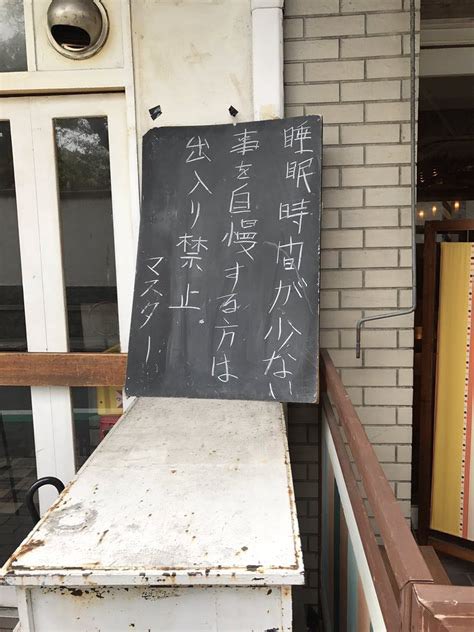 睡眠時間が少ない
事を自慢する方は
出入り禁止.
マスター